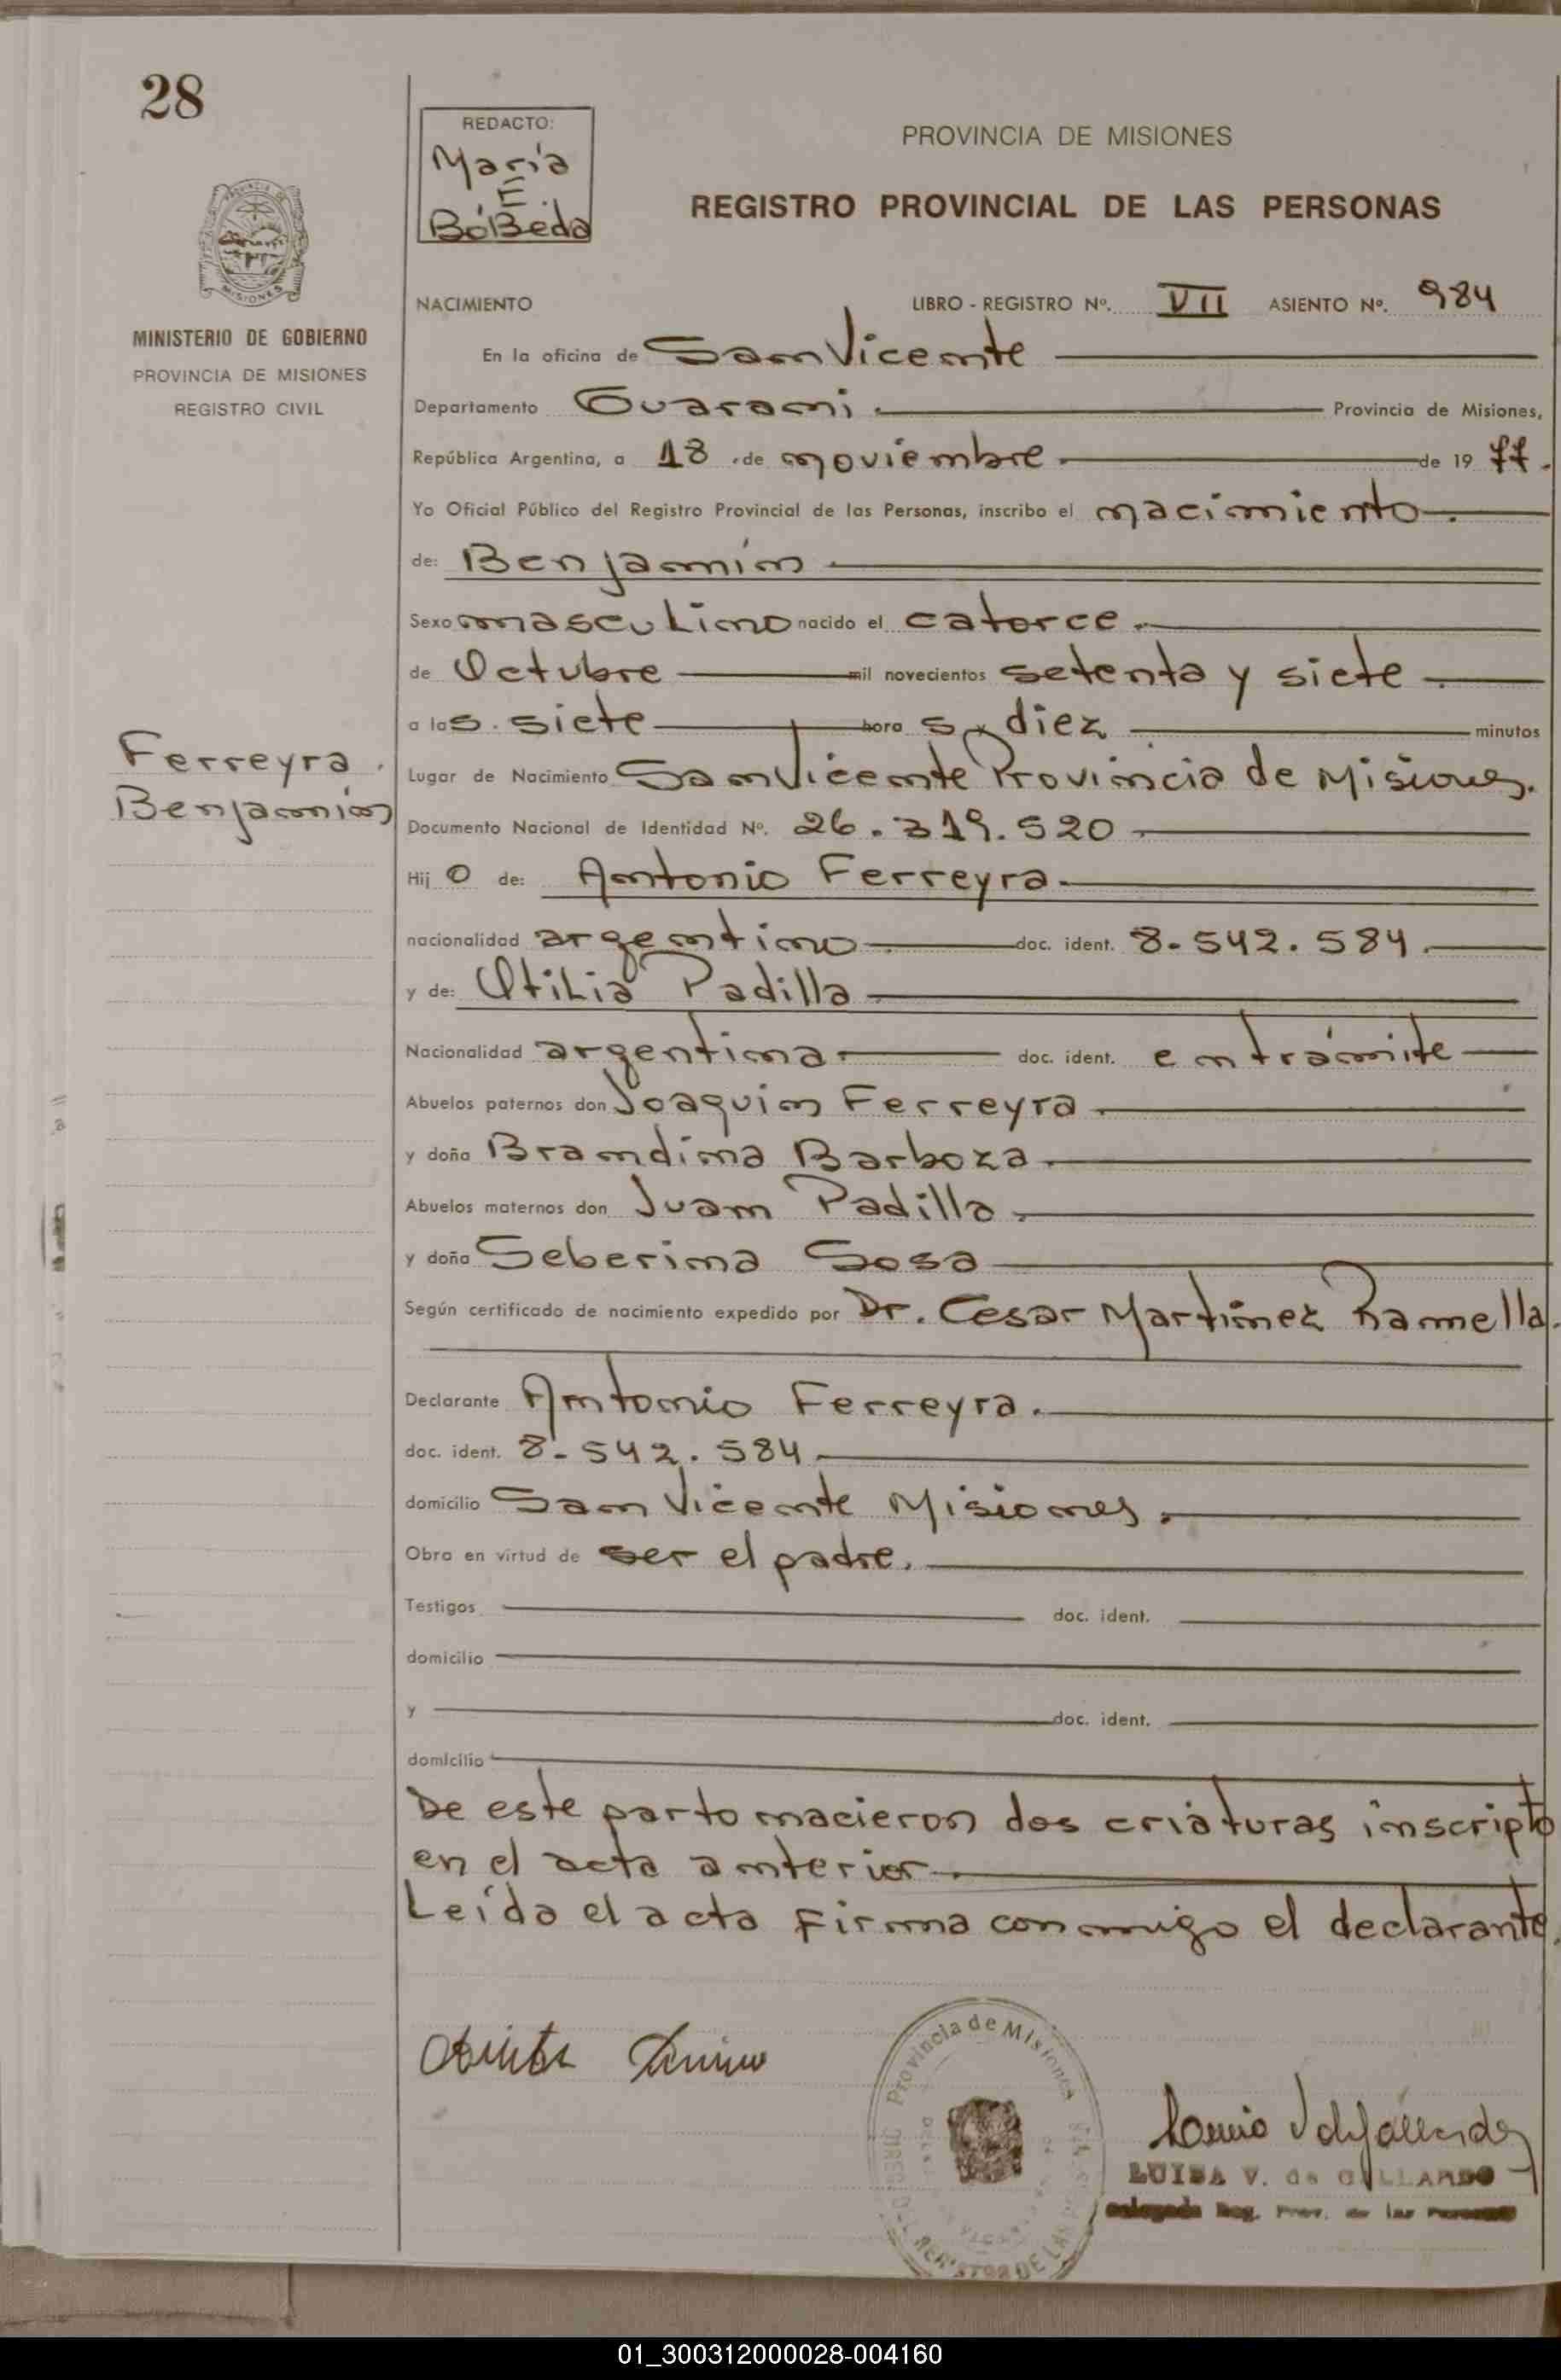 28
REDACTO:
María
E.
BóBeda
PROVINCIA DE MISIONES
REGISTRO PROVINCIAL DE LAS PERSONAS
MISIONES
MINISTERIO DE GOBIERNO
PROVINCIA DE MISIONES
REGISTRO CIVIL
NACIMIENTO LIBRO - REGISTRO Nº. VII ASIENTO Nº. 984
En la oficina de San Vicente
Departamento Guarani Provincia de Misiones,
República Argentina, a 18 de noviembre de 19 77.
Yo Oficial Público del Registro Provincial de las Personas, inscribo el nacimiento
de: Benjamín
Sexo masculino nacido el catorce
de Octubre mil novecientos setenta y siete
a las siete horas y diez minutos
Ferreyra
Benjamín
Lugar de Nacimiento San Vicente Provincia de Misiones.
Documento Nacional de Identidad Nº. 26.319.520
Hijo de: Antonio Ferreyra
nacionalidad argentino doc. ident. 8.542.584
y de: Otilia Padilla
Nacionalidad argentina doc. ident. en trámite
Abuelos paternos don Joaquin Ferreyra
y doña Brandina Barboza
Abuelos maternos don Juan Padilla
y doña Seberina Sosa
Según certificado de nacimiento expedido por Dr. Cesar Martinez Ramella.
Declarante Antonio Ferreyra.
doc. ident. 8.542.584
domicilio San Vicente Misiones.
Obra en virtud de ser el padre.
Testigos doc. ident.
domicilio
y doc. ident.
domicilio
De este parto nacieron dos criaturas inscripto
en el acta anterior
Leída el acta firma conmigo el declarante.
Provincia de Misiones
LUISA V. de GALLARDO
Delegada Reg. Prov. de las Personas
01_300312000028-004160